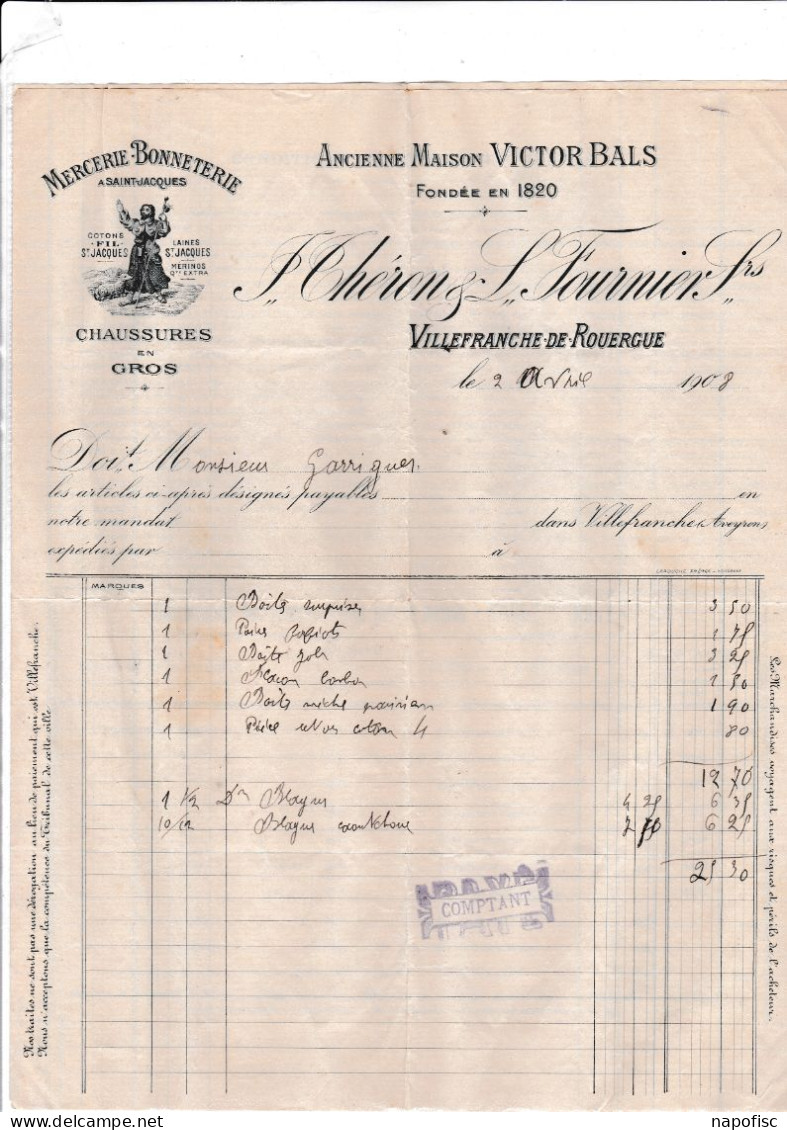 MERCERIE-BONNETERIE
A SAINT-JACQUES
COTONS
FIL
ST JACQUES
LAINES
ST JACQUES
MÉRINOS
QTÉ EXTRA
CHAUSSURES
EN
GROS
ANCIENNE MAISON VICTOR BALS
FONDÉE EN 1820
P. Théron & L. Fournier Srs
VILLEFRANCHE-DE-ROUERGUE
le 2 Avril 1908
Doit Monsieur Garrigues
les articles ci-après désignés payables en
notre mandat dans Villefranche (Aveyron)
expédiés par à
MARQUES
1 Boîte 3 50
1 Paire 1 75
1 Boîte 3 25
1 1 50
1 Boîte 1 90
1 Paire coton 4 80
12 70
1 1/2 Dne 4 25 6 35
10/12 6 25
25 30
PAYÉ
COMPTANT
Nos traites ne sont pas une dérogation au lieu de paiement qui est Villefranche.
Nous n'acceptons que la compétence du Tribunal de cette ville
Les Marchandises voyagent aux risques et périls de l'acheteur.
napofisc
delcampe.net